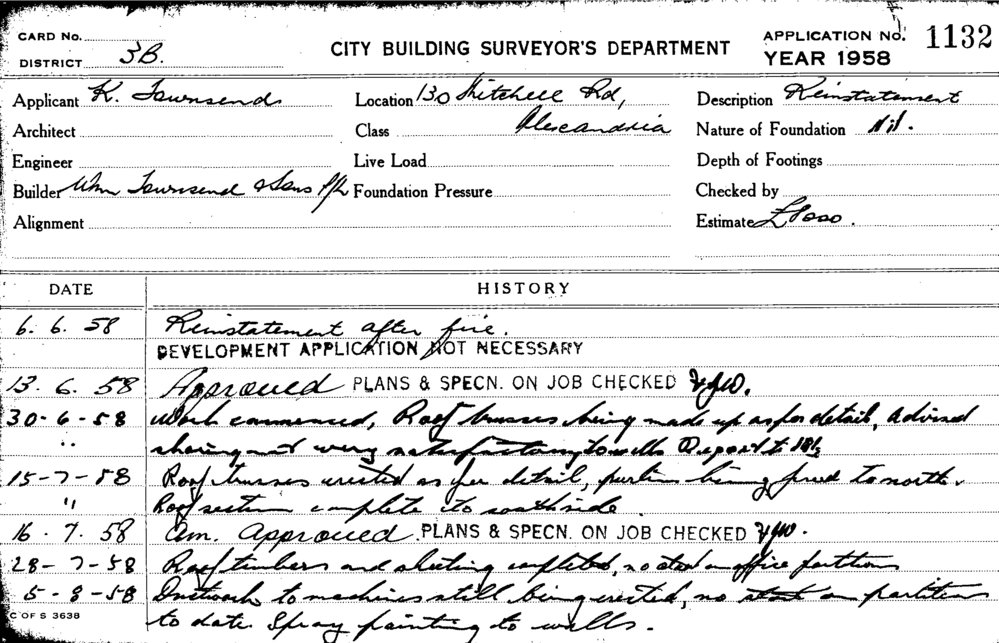 CARD No.
DISTRICT 3B.
CITY BUILDING SURVEYOR'S DEPARTMENT
APPLICATION No. 1132
YEAR 1958
Applicant K. Townsend
Location 130 Mitchell Rd,
Description Reinstatement
Architect
Class Alexandria
Nature of Foundation Nil.
Engineer
Live Load
Depth of Footings
Builder Wm Townsend & Sons P/L
Foundation Pressure
Checked by
Alignment
Estimate
DATE HISTORY
6. 6. 58 Reinstatement after fire.
DEVELOPMENT APPLICATION NOT NECESSARY
13. 6. 58 Approved PLANS & SPECN. ON JOB CHECKED
30-6-58 Work commenced, Roof trusses being made up as per detail, advised
" shoring not very satisfactory to walls Report to
15-7-58 Roof trusses erected as per detail, purlins being fixed to north.
" Roof section complete to southside.
16. 7. 58 Am. Approved. PLANS & SPECN. ON JOB CHECKED
28-7-58 Roof timbers and sheeting completed, no start on office partitions
5-8-58 Ductwork to machines still being erected, no start on partitions
C OF S 3638
to date Spray painting to walls.